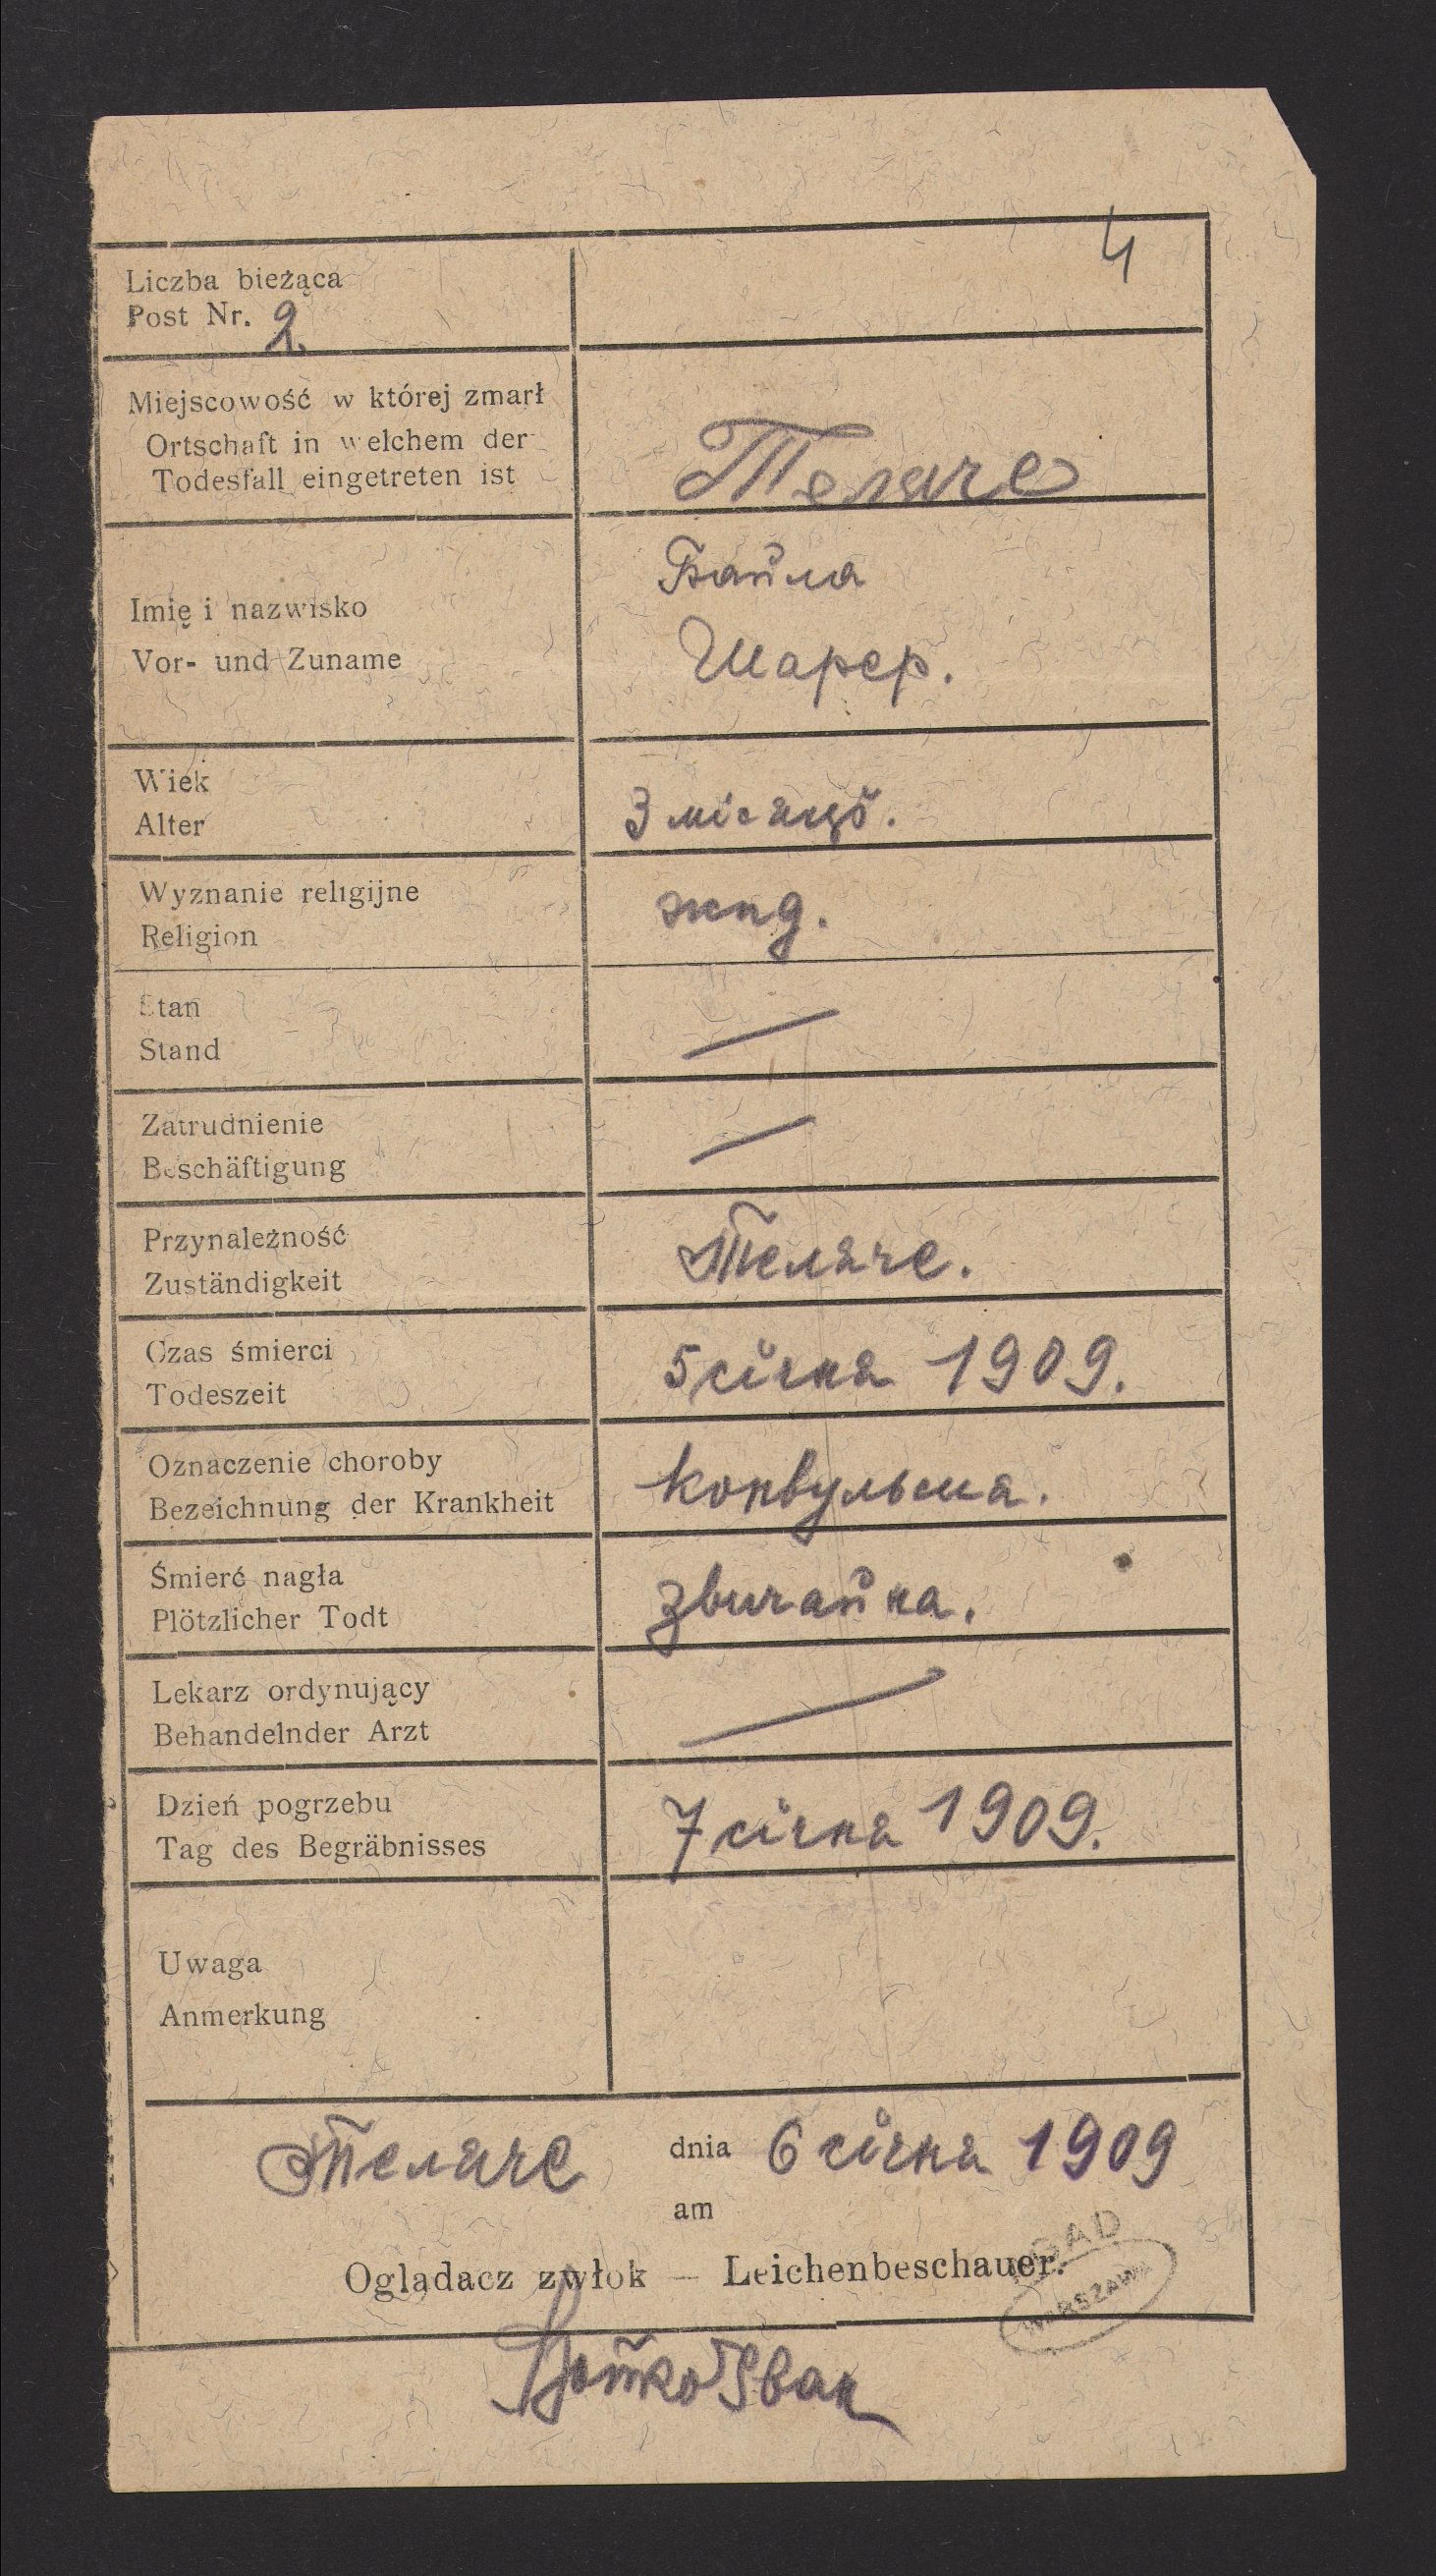 4
Liczba bieżąca
Post Nr. 2.
Miejscowość w której zmarł
Ortschaft in welchem der
Todesfall eingetreten ist
Теляче
Imię i nazwisko
Vor- und Zuname
Байла
Шарер.
Wiek
Alter
3 місяцї.
Wyznanie religijne
Religion
жид.
Stan
Stand
—
Zatrudnienie
Beschäftigung
—
Przynależność
Zuständigkeit
Теляче.
Czas śmierci
Todeszeit
5 сїчня 1909.
Oznaczenie choroby
Bezeichnung der Krankheit
Конвульсия.
Śmierć nagła
Plötzlicher Todt
звичайна.
Lekarz ordynujący
Behandelnder Arzt
—
Dzień pogrzebu
Tag des Begräbnisses
7 сїчня 1909.
Uwaga
Anmerkung
Теляче dnia 6 сїчня 1909
am
Oglądacz zwłok — Leichenbeschauer.
AGAD
WARSZAWA
Іван